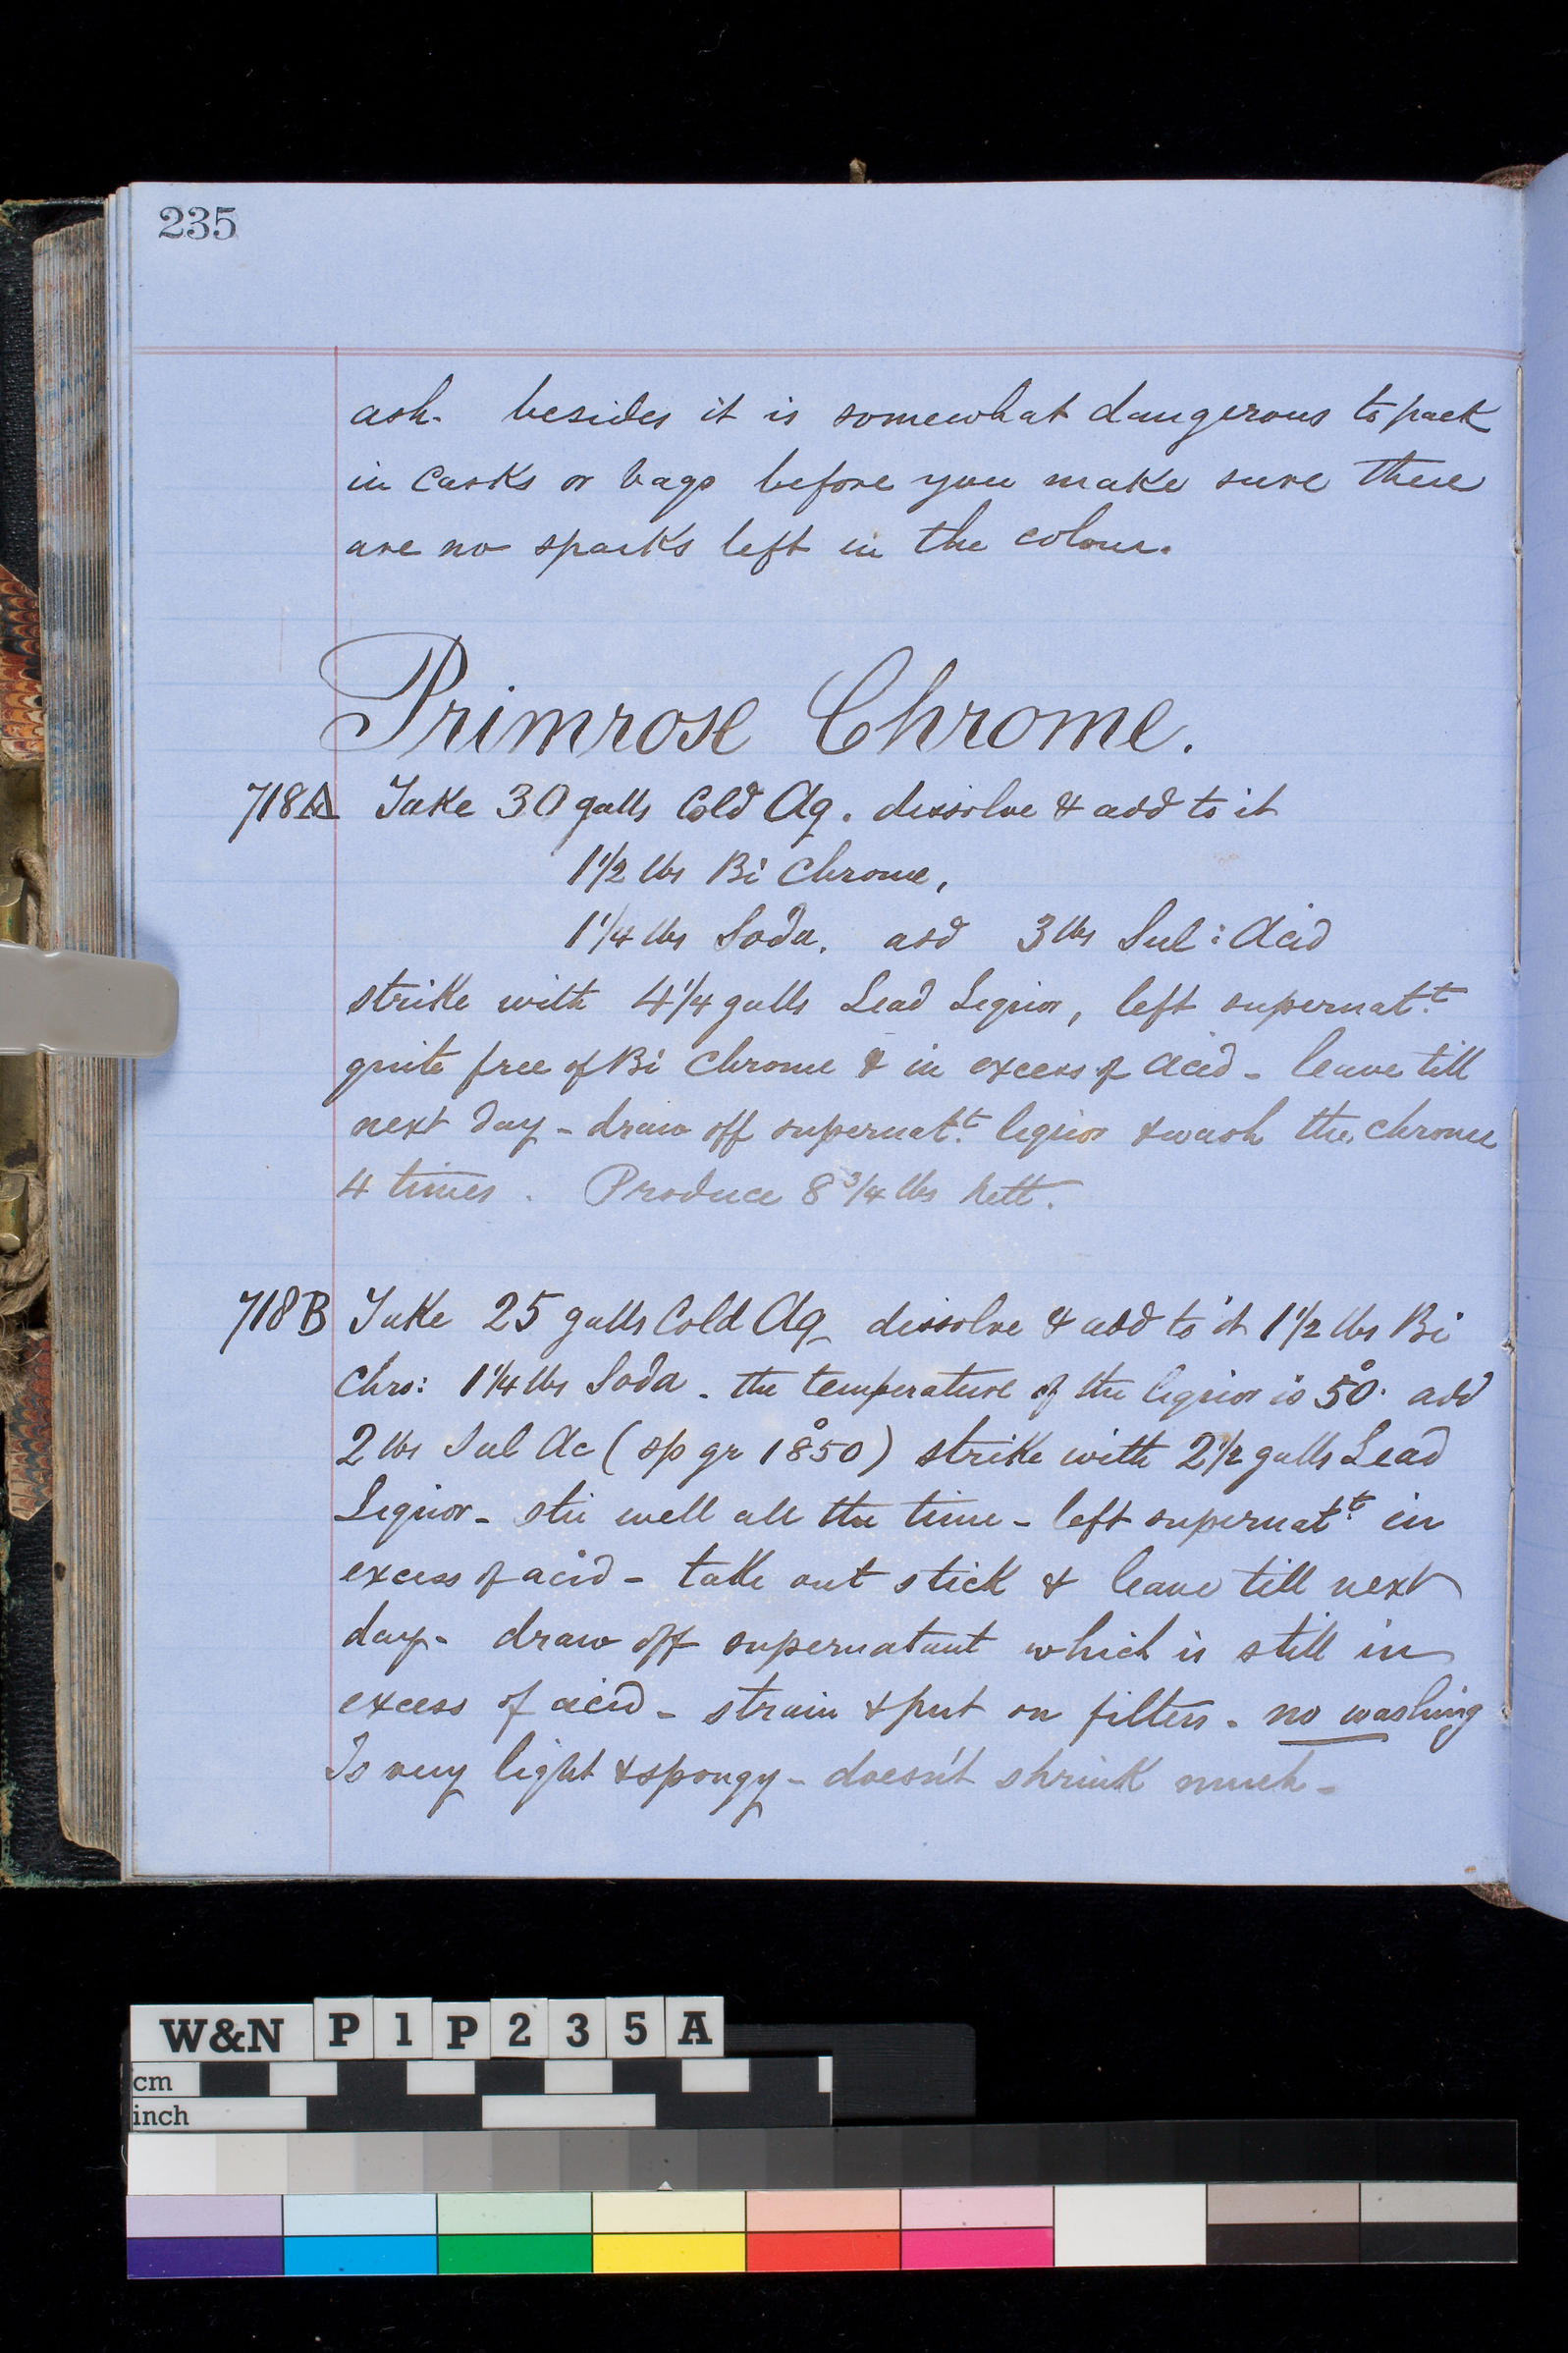 235
ash. besides it is somewhat dangerous to pack
in casks or bags before you make sure there
are no sparks left in the colour.
Primrose Chrome.
718A Take 30 galls Cold Aq. dissolve & add to it
1 1/2 lbs Bi Chrome,
1 1/4 lbs Soda. add 3 lbs Sul: Acid
strike with 4 1/4 galls Lead Liquor, left supernat.t
quite free of Bi Chrome & in excess of acid - leave till
next day - draw off supernat.t liquor & wash the chrome
4 times. Produce 8 3/4 lbs nett.
718B Take 25 galls Cold Aq dissolve & add to it 1 1/2 lbs Bi
Chro: 1 1/4 lbs Soda - the temperature of the liquor is 50° add
2 lbs Sul Ac (sp gr 1°850) strike with 2 1/2 galls Lead
Liquor - stir well all the time - left supernat.t in
excess of acid - take out stick & leave till next
day - draw off supernatant which is still in
excess of acid - strain & put on filters - no washing
Is very light & spongy - doesn't shrink much -
W&N P1P235A
cm
inch